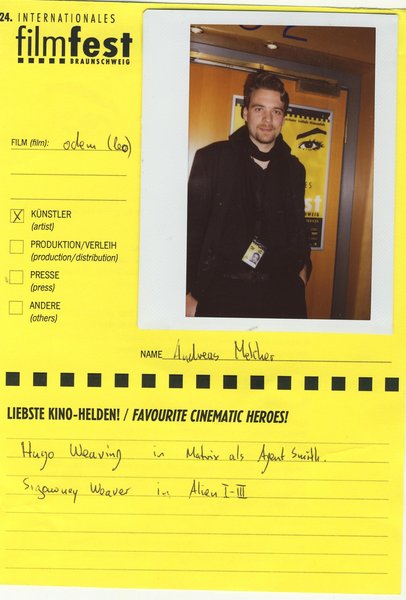 24. INTERNATIONALES
filmfest
BRAUNSCHWEIG
FILM (film): odem (leo)
X KÜNSTLER
(artist)
PRODUKTION/VERLEIH
(production/distribution)
PRESSE
(press)
ANDERE
(others)
NAME Andreas Melcher
LIEBSTE KINO-HELDEN! / FAVOURITE CINEMATIC HEROES!
Hugo Weaving in Matrix als Agent Smith.
Sigourney Weaver in Alien I-III